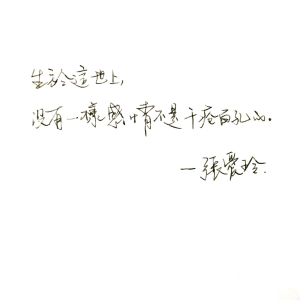 生於這世上,
没有一樣感情不是千疮百孔的.
—張愛玲.